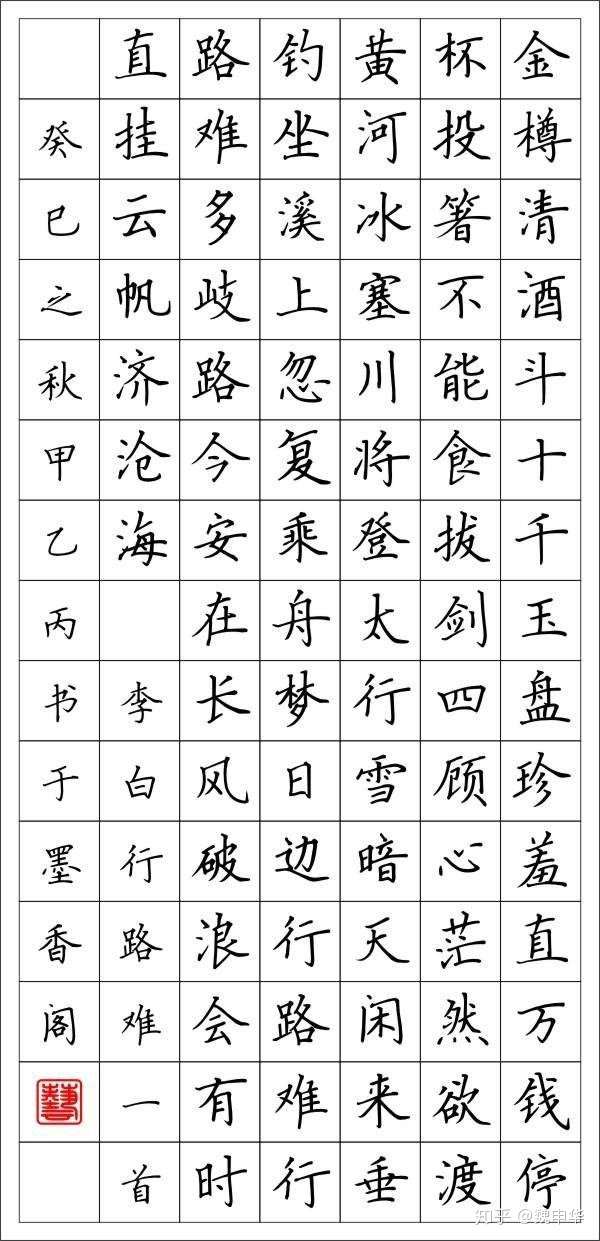 金樽清酒斗十千玉盘珍羞直万钱停
杯投箸不能食拔剑四顾心茫然欲渡
黄河冰塞川将登太行雪暗天闲来垂
钓坐溪上忽复乘舟梦日边行路难行
路难多歧路今安在长风破浪会有时
直挂云帆济沧海 李白行路难一首
癸巳之秋甲乙丙书于墨香阁
藝
知乎 @魏申华